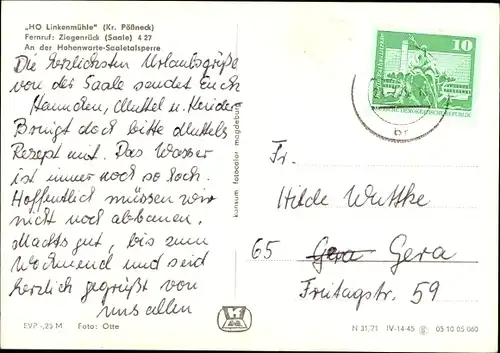 „HO Linkenmühle" (Kr. Pößneck)
Fernruf: Ziegenrück (Saale) 4 27
An der Hohenwarte-Saaletalsperre
Die herzlichsten Urlaubsgrüße
von der Saale sendet Euch
Hannchen, Muttel u. Kinder.
Bringt doch bitte Muttels
Rezept mit. Das Wasser
ist immer noch so hoch.
Hoffentlich müssen wir
nicht noch abbauen.
Machts gut, bis zum
Wochenend und seid
herzlich gegrüßt von
uns allen
EVP -,25 M Foto: Otte
konsum fotocolor magdeburg
10
DEUTSCHE DEMOKRATISCHE REPUBLIK
Fr.
Hilde Wuttke
65 Gera Gera
Freitagstr. 59
N 31,71 IV-14-45 05 10 05 060